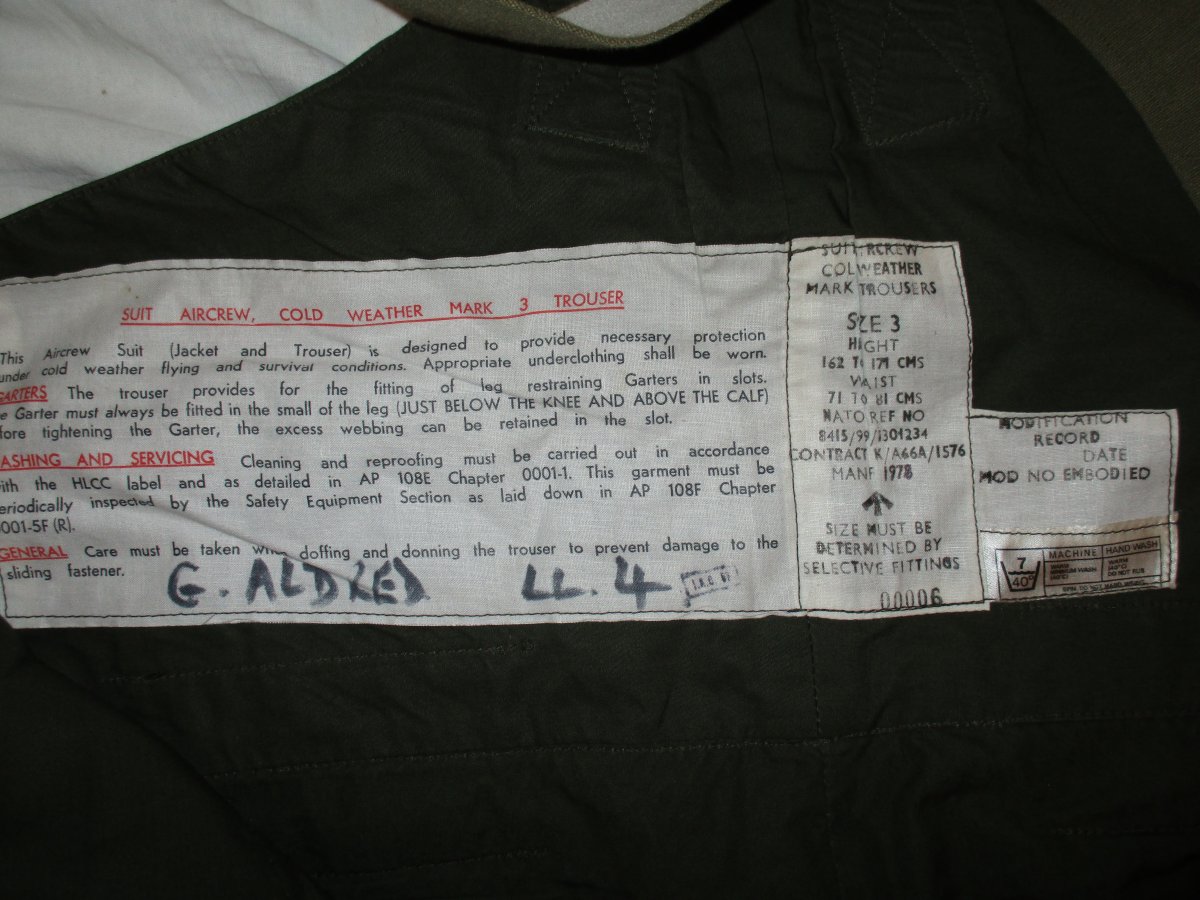 SUIT AIRCREW, COLD WEATHER MARK 3 TROUSER
This Aircrew Suit (Jacket and Trouser) is designed to provide necessary protection
under cold weather flying and survival conditions. Appropriate underclothing shall be worn.
GARTERS The trouser provides for the fitting of leg restraining Garters in slots.
e Garter must always be fitted in the small of the leg (JUST BELOW THE KNEE AND ABOVE THE CALF)
fore tightening the Garter, the excess webbing can be retained in the slot.
ASHING AND SERVICING Cleaning and reproofing must be carried out in accordance
ith the HLCC label and as detailed in AP 108E Chapter 0001-1. This garment must be
eriodically inspected by the Safety Equipment Section as laid down in AP 108F Chapter
001-5F (R).
GENERAL Care must be taken when doffing and donning the trouser to prevent damage to the
sliding fastener.
G. ALDRED LL. 4
SUIT RCREW
COL WEATHER
MARK TROUSERS
SIZE 3
HIGHT
162 TO 171 CMS
WAIST
71 TO 81 CMS
NATO REF NO
8415/99/1301234
CONTRACT K/A66A/1576
MANF 1978
SIZE MUST BE
DETERMINED BY
SELECTIVE FITTINGS
00006
MODIFICATION
RECORD
DATE
MOD NO EMBODIED
7
40°
MACHINE HAND WASH
WARM
MINIMUM WASH
(40°C)
WARM
(40°C)
DO NOT RUB